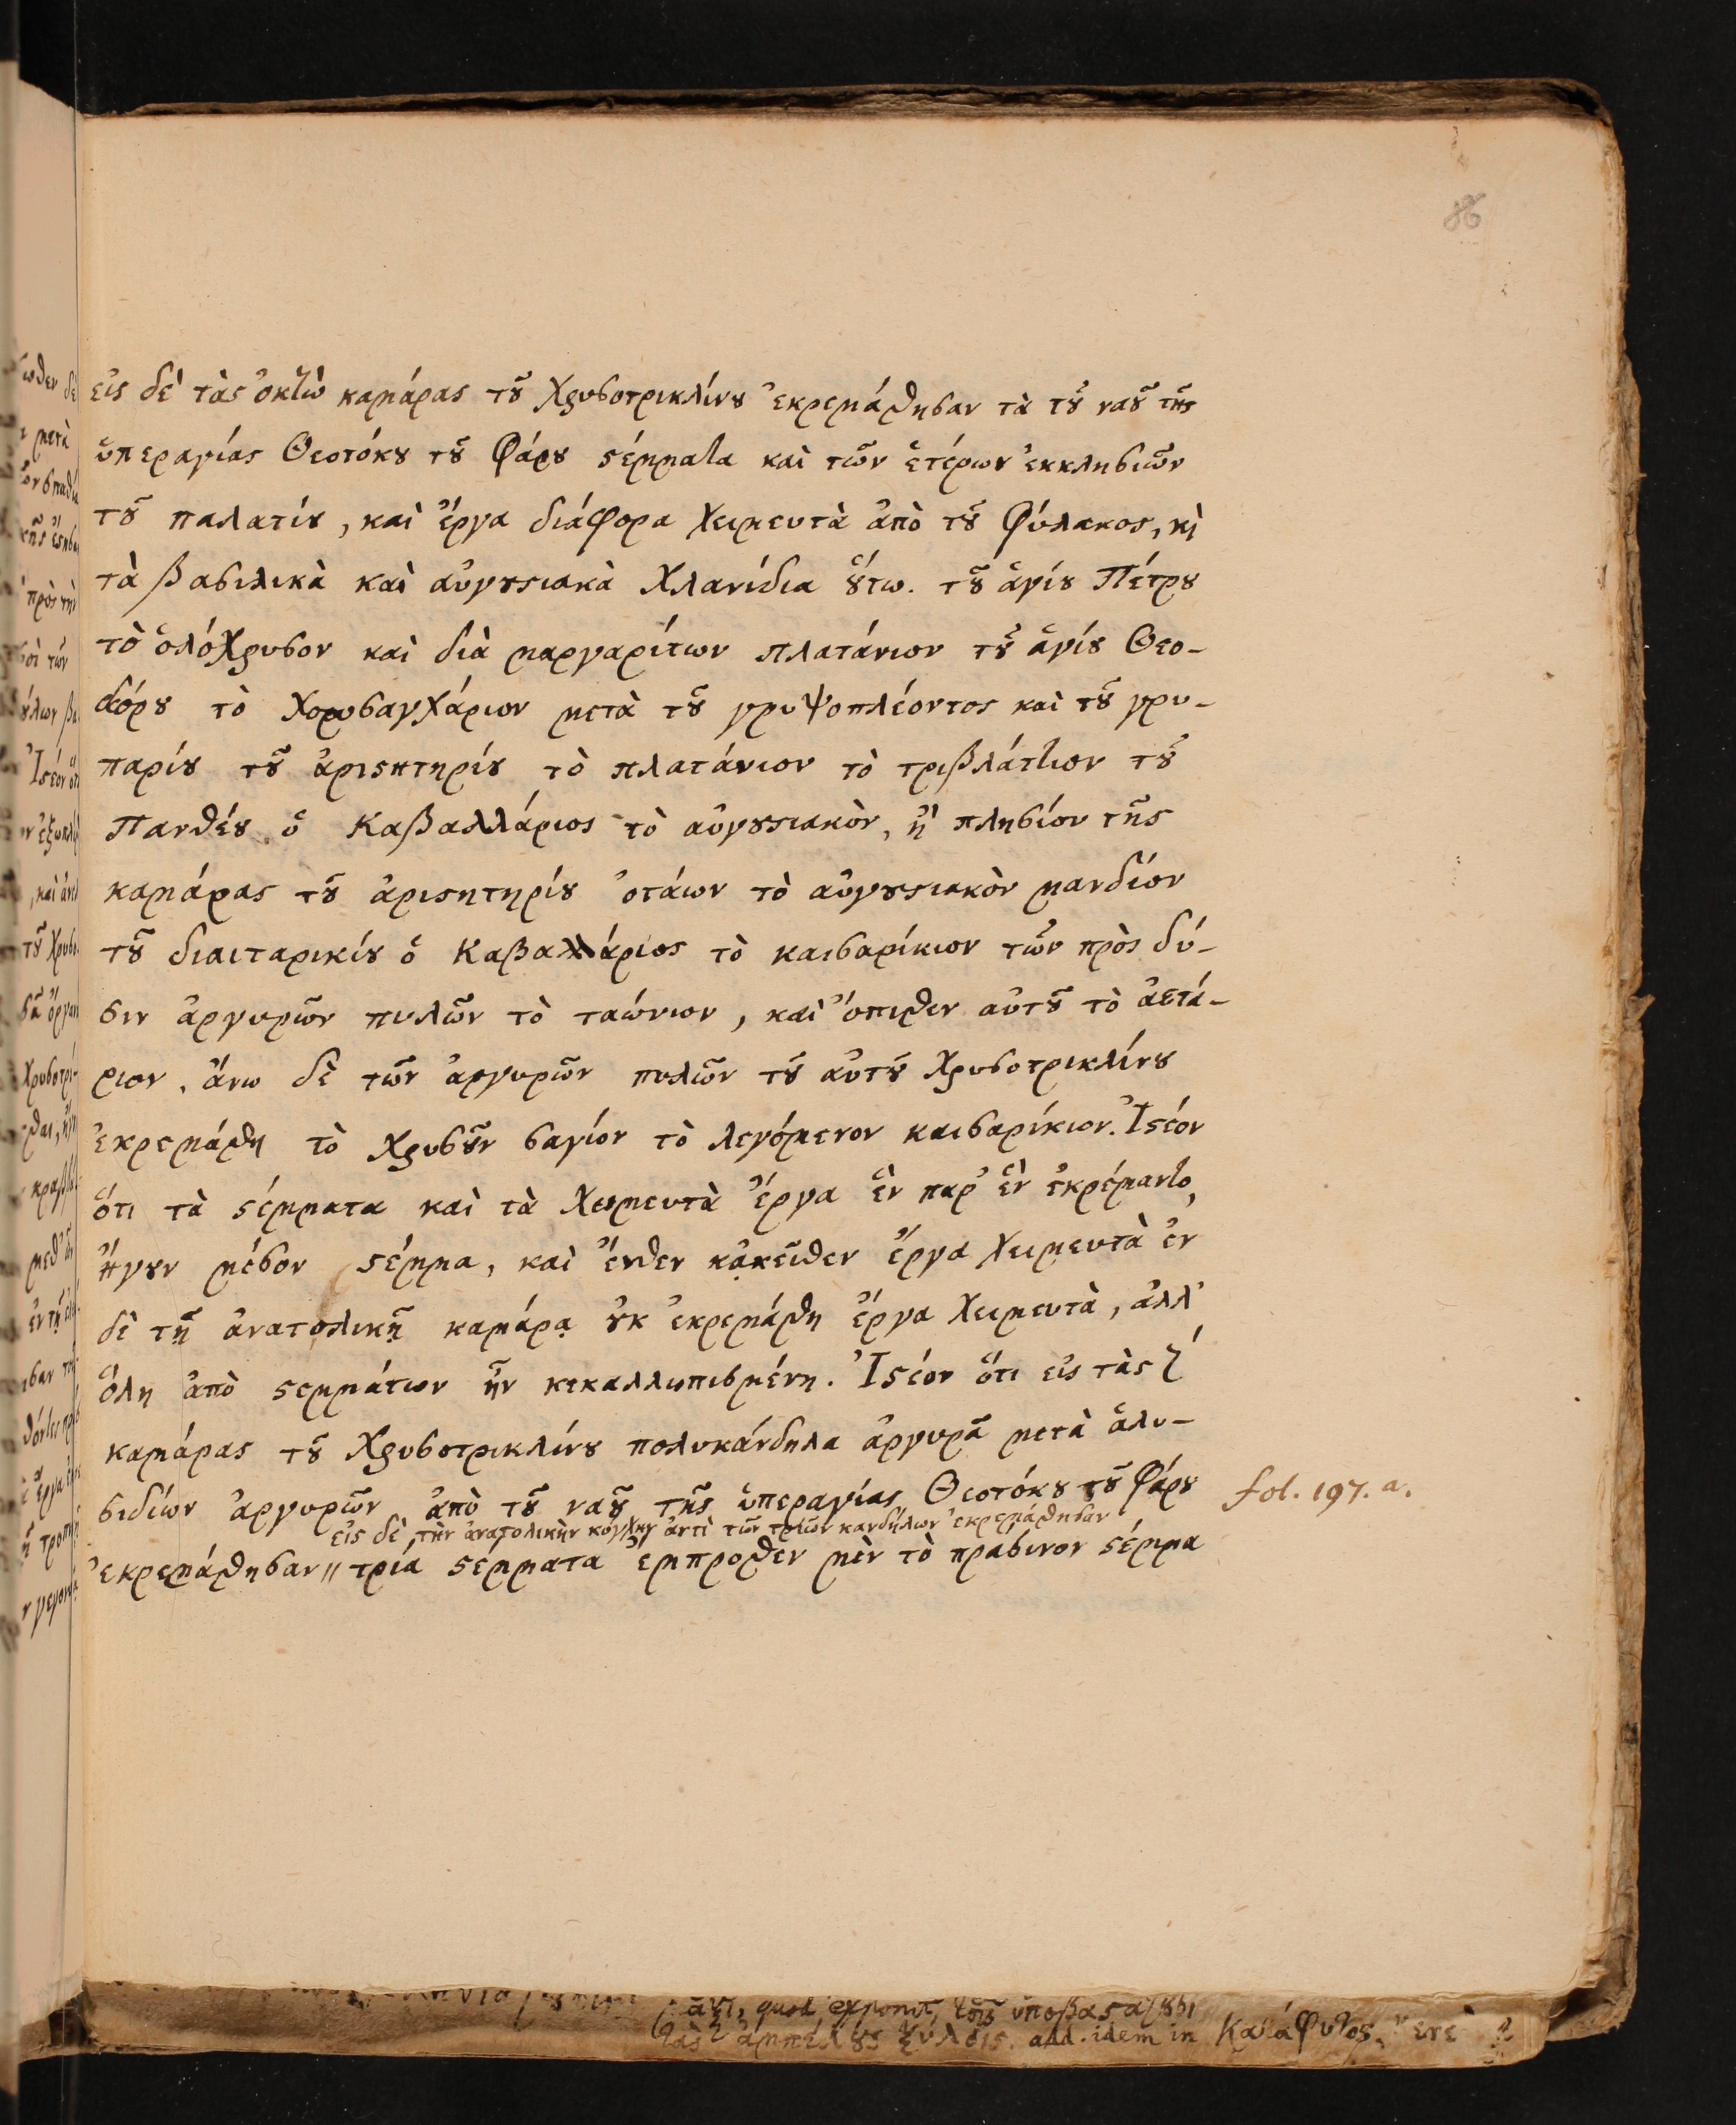 86
εἰς δὲ τὰς ὀκτὼ καμάρας τȣ͂ Χρυσοτρικλίνȣ ἐκρεμάσθησαν τὰ τȣ͂ ναȣ͂ τῆς
ὑπεραγίας Θεοτόκȣ τȣ͂ Φάρȣ ϛέμματα καὶ τῶν ἑτέρων ἐκκλησιῶν
τȣ͂ παλατίȣ, καὶ ἔργα διάφορα χειμευτὰ ἀπὸ τȣ͂ Φύλακος, κὶ
τὰ βασιλικὰ καὶ αὐγȣϛιακὰ χλανίδια ȣ̔́τω. τȣ͂ ἁγίȣ Πέτρȣ
τὸ ὁλόχρυσον καὶ διὰ μαργαρίτων πλατάνιον τȣ͂ ἁγίȣ Θεο-
δόρȣ τὸ χορυσαγχάριον μετὰ τȣ͂ γρυψοπλέοντος καὶ τȣ͂ γρυ-
παρίȣ τȣ͂ ἀριϛητηρίȣ τὸ πλατάνιον τὸ τριβλάττιον τȣ͂
Πανθέȣ ὁ Καβαλλάριος τὸ αὐγȣϛιακὸν, ἢ πλησίον τῆς
καμάρας τȣ͂ ἀριϛητηρίȣ ὀτάων τὸ αὐγȣϛιακὸν μανδίον
τȣ͂ διαιταρικίȣ ὁ Καβαλλάριος τὸ καισαρίκιον τῶν πρὸς δύ-
σιν ἀργυρῶν πυλῶν τὸ ταώνιον, καὶ ὄπισθεν αὐτȣ͂ τὸ ἀετά-
ριον. ἄνω δὲ τῶν ἀργυρῶν πυλῶν τȣ͂ αὐτȣ͂ Χρυσοτρικλίνȣ
ἐκρεμάσθη τὸ χρυσȣ͂ν σαγίον τὸ λεγόμενον καισαρίκιον. Ἰϛέον
ὅτι τὰ ϛέμματα καὶ τὰ χειμευτὰ ἔργα ἓν παρ' ἓν ἐκρέμαντο,
ἤγȣν μέσον ϛέμμα, καὶ ἔνθεν κᾀκεῖθεν ἔργα χειμευτὰ ἐν
δὲ τῇ ἀνατολικῇ καμάρᾳ ȣ̓κ ἐκρεμάσθη ἔργα χειμευτὰ, ἀλλ'
ὅλη ἀπὸ ϛεμμάτων ἦν κεκαλλωπισμένη. Ἰϛέον ὅτι εἰς τὰς ζ'
καμάρας τȣ͂ Χρυσοτρικλίνȣ πολυκάνδηλα ἀργυρᾶ μετὰ ἁλυ-
σιδίων ἀργυρῶν ἀπὸ τȣ͂ ναȣ͂ τῆς ὑπεραγίας Θεοτόκȣ τȣ͂ Φάρȣ
fol. 197. a.
εἰς δὲ τὴν ἀνατολικὴν κόγχην ἀντὶ τῶν τριῶν κανδήλων ἐκρεμάσθησαν
ἐκρεμάσθησαν〃 τρία ϛεμματα ἔμπροσθεν μὲν τὸ πράσινον ϛέμμα
quod
add. idem in